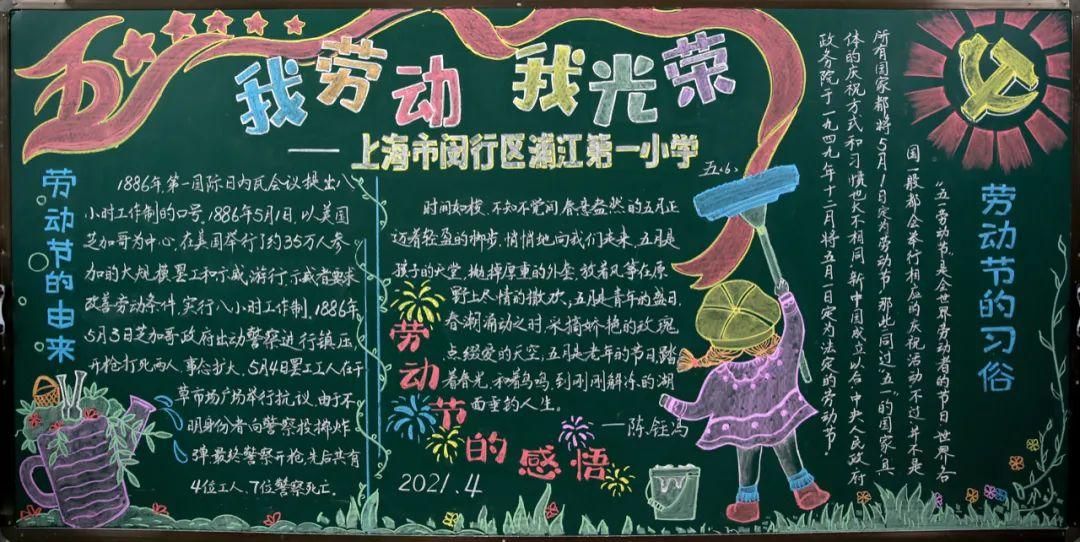 五一
我劳动 我光荣
——上海市闵行区浦江第一小学
五.(6)
劳动节的由来
1886年,第一国际日内瓦会议提出八
小时工作制的口号.1886年5月1日,以美国
芝加哥为中心,在美国举行了约35万人参
加的大规模罢工和示威游行,示威者要求
改善劳动条件,实行八小时工作制.1886年
5月3日芝加哥政府出动警察进行镇压,
开枪打死两人,事态扩大,5月4日罢工工人在干
草市场广场举行抗议,由于不
明身份者向警察投掷炸
弹,最终警察开枪,先后共有
4位工人、7位警察死亡.
时间如梭,不知不觉间,春意盎然的五月正
迈着轻盈的脚步,悄悄地向我们走来,五月是
孩子的天堂,抛掉厚重的外套,放着风筝在原
野上尽情的撒欢,五月是青年的盛日,
春潮涌动之时,采摘娇艳的玫瑰
点缀爱的天空,五月是老年的节日,踏
着春光,和着鸟鸣,到刚刚解冻的湖
面垂钓人生。
——陈钰冯
劳动节的感悟
2021.4
劳动节的习俗
“五一劳动节”是全世界劳动者的节日,世界各
国一般都会举行相应的庆祝活动,不过,并不是
所有国家都将5月1日定为劳动节,那些同过“五一”的国家,具
体的庆祝方式和习惯也大不相同,新中国成立以后,中央人民政府
政务院于一九四九年十二月将五月一日定为法定的劳动节.